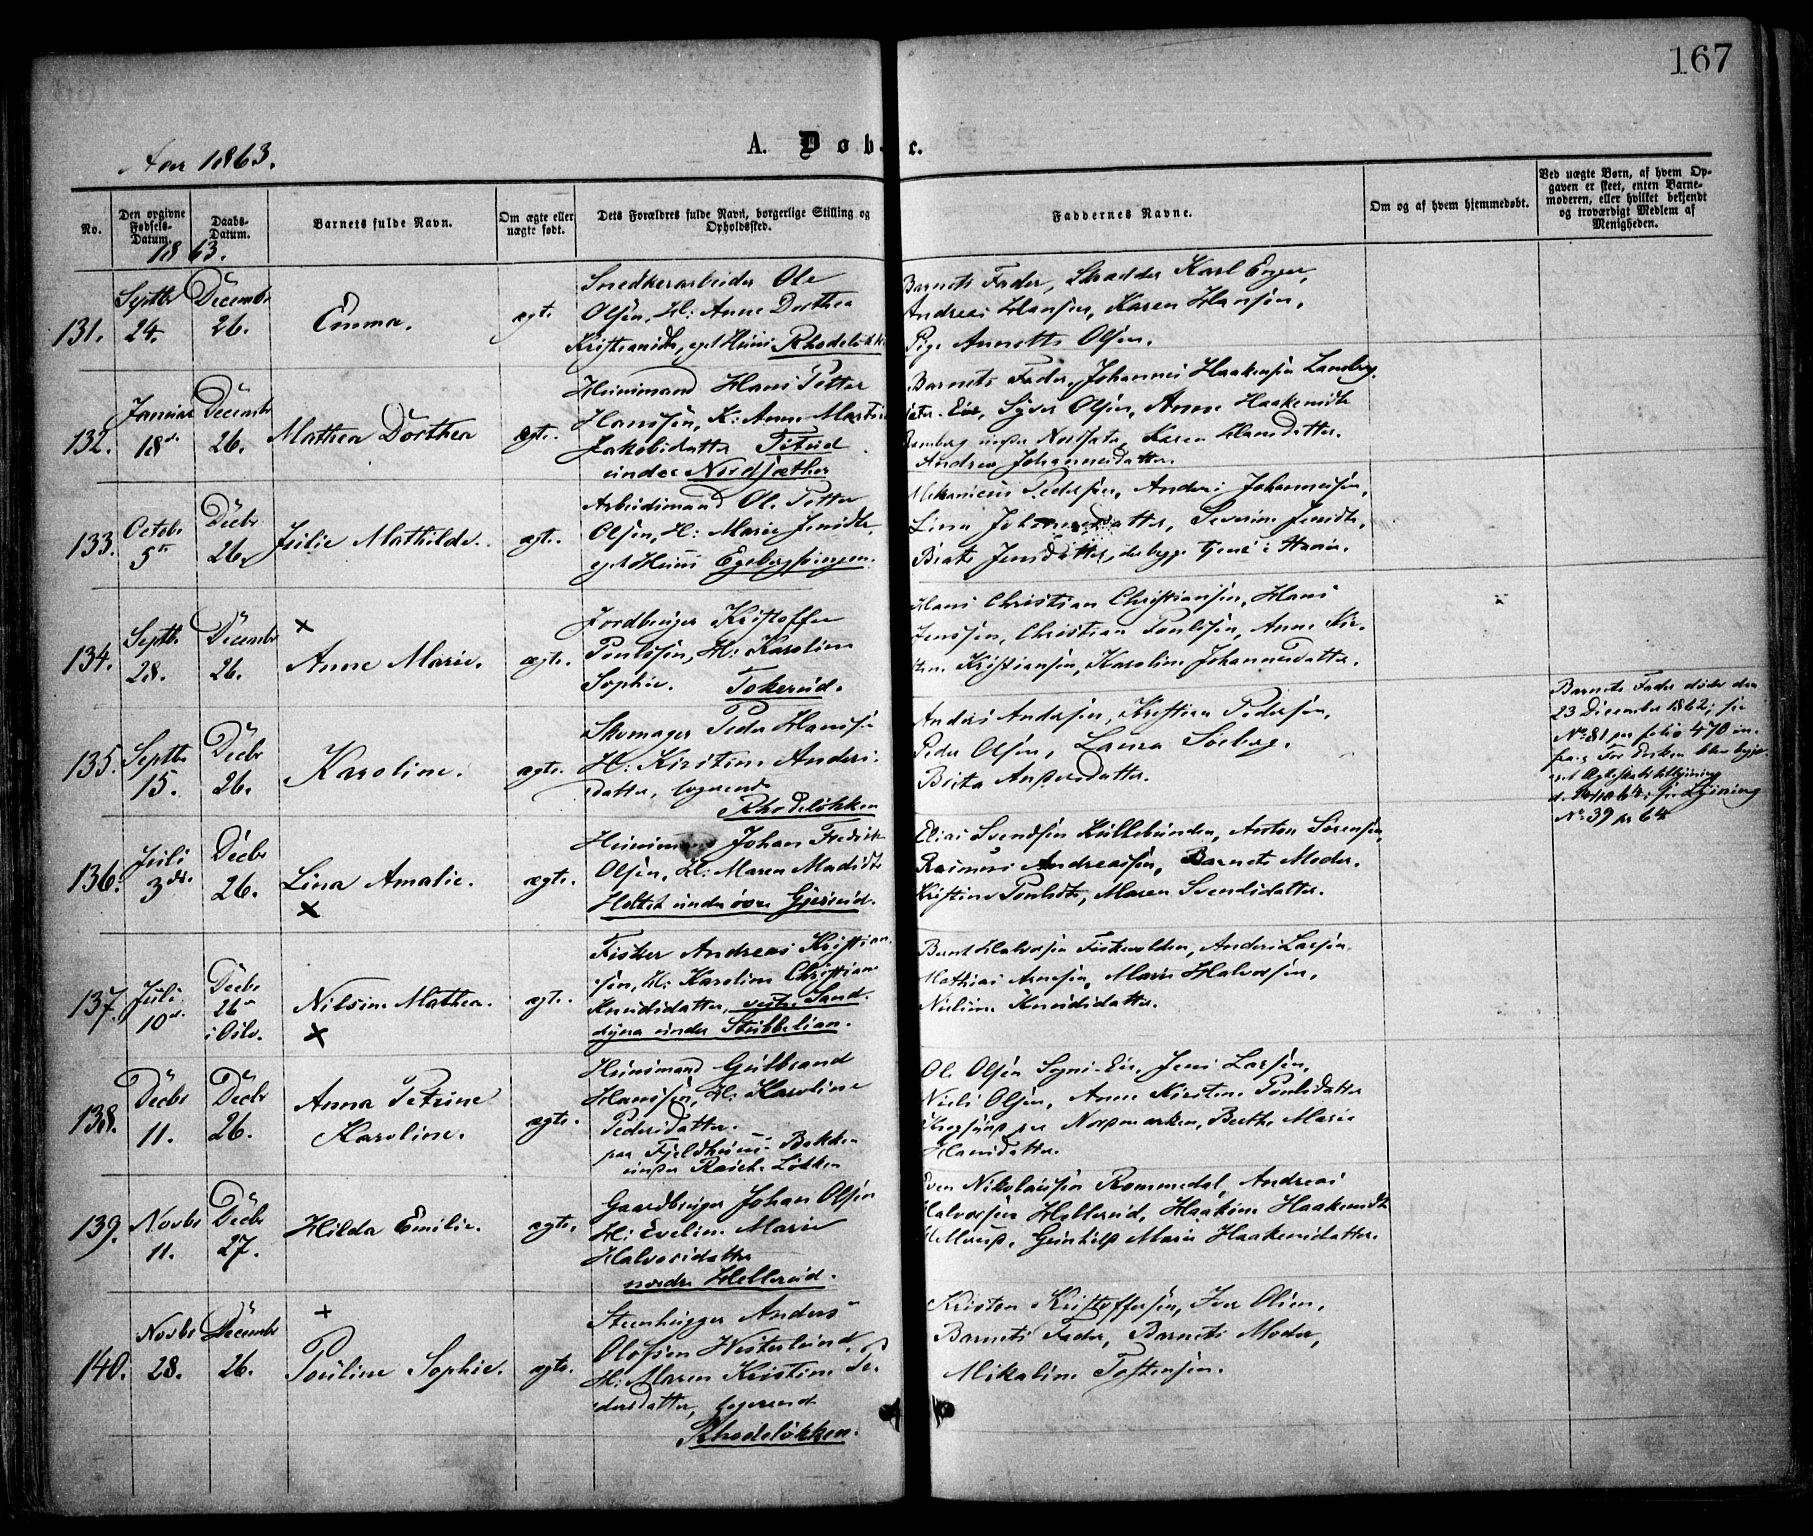 167
Aar 1863.
A. Døb
e.
No.
Den opgivne Fødsels-Datum.
Daabs-Datum.
Barnets fulde Navn.
Om ægte eller uægte født.
Dets Forældres fulde Navn, borgerlige Stilling og Opholdssted.
Faddernes Navne.
Om og af hvem hjemmedøbt.
Ved uægte Børn, af hvem Op-
gaven er skeet, enten Barne-
moderen, eller hvilket bekjendt
og troværdigt Medlem af
Menigheden.
1863.
131.
Septbr 24.
Decembr 26.
Emma.
ægte.
Snedkerarbeider Ole
Olsen, H: Anne Dorthea
Kristiansdtr, eget Huus Rhodeløkken
Barnets Fader, Skrædder Karl Enger,
Andreas Hansen, Karen Hansen,
Pige Annette Olsen.
132.
Januar 18de
Decembr 26.
Mathea Dorthea
ægte.
Huusmand Hans Petter
Hanssen, K: Anne Martine
Jakobsdatter
under Nordsæther
Barnets Fader, Johannes Haakensen Lamberg
Eie, Syver Olsen, Anne Haakensdtr
Karen Hansdatter.
Andrea Johannesdatter.
133.
Octobr 5te
Decbr 26.
Julie Mathilde.
ægte.
Arbeidsmand Ole Petter
Olsen, H: Marie Jensdtr,
eget Huus Egebergsvingen.
Mekanicus Pedersen, Anders Johannesen,
Lina Johannesdatter, Severine Jensdtr,
Beate Jensdatter, der begge tjene i Staden.
134.
Septbr 28.
Decembr 26.
×
Anne Marie.
ægte.
Jordbruger Kristoffer
Poulssen, H: Karoline
Sophie. Tokerud.
Hans Christian Christiansen, Hans
Jenssen, Christian Poulssen, Anne Kir-
stine Kristiansen, Karoline Johannesdatter.
135.
Septbr 15.
Decbr 26.
Karoline.
ægte.
Skomager Peder Hanssen
H: Kirstine Anders-
datter, logerende
Rhodeløkken
Anders Andersen, Kristian Pedersen,
Peder Olsen, Laura Soeberg.
Brita Andersdatter.
Barnets Fader døde den
23 December 1862; se
No 81 paa folio 470 in-
No 39 pr 64
136.
Juli 3die.
Decbr 26.
Lina Amalie.
×
ægte.
Huusmand Johan Fredrik
Olsen, H: Maren Madsdtr
Holtet under øvre Gjersrud.
Elias Svendsen Kullebunden, Anton Sørensen,
Rasmus Andreassen, Barnets Moder.
Kristine Poulsdtr, Maren Svendsdatter.
137.
Juli 10de
Decbr 26de i Oslo.
Nilsine Mathea.
×
ægte.
Fisker Andreas Kristian-
sen, H: Karoline Christiane
Knudsdatter, vestre Sand-
under Stubbelian.
Bernt Halvorsen Fiskevolden, Anders Larsen.
Mathias Arnesen, Marie Halvorsen,
Nielsine Knudsdatter.
138.
Decbr 11.
Decbr 26.
Anna Petrine
Karoline.
ægte.
Huusmand Gulbrand
Hanssen, H: Karoline
Pedersdatter.
paa Fjeldhuus Bakken
under Løkken
Ole Olsen Eie, Jens Larsen,
Niels Olsen, Anne Kirstine Poulsdatter
Nordmarken, Berthe Marie
Hansdatter.
139.
Novbr 11.
Decbr 27.
Hilda Emilie.
ægte.
Gaardbruger Johan Olsen
H: Eveline Marie
Halvorsdatter
nordre Hellerud.
Even Nikolaisen Rommedal, Andreas
Halvorsen Hellerud, Haakine Haakensdtr
Hellerud, Gunhild Marie Haakensdatter.
140.
Novbr 28.
Decembr 26.
+
Pouline Sophie.
ægte.
Steenhugger Anders
Olofsen Westerlund,
H: Maren Kristine Pe-
dersdatter, logerende
Rhodeløkken.
Kristen Kristoffersen, Iver Olsen,
Barnets Fader, Barnets Moder,
Mikaline Tostensen.